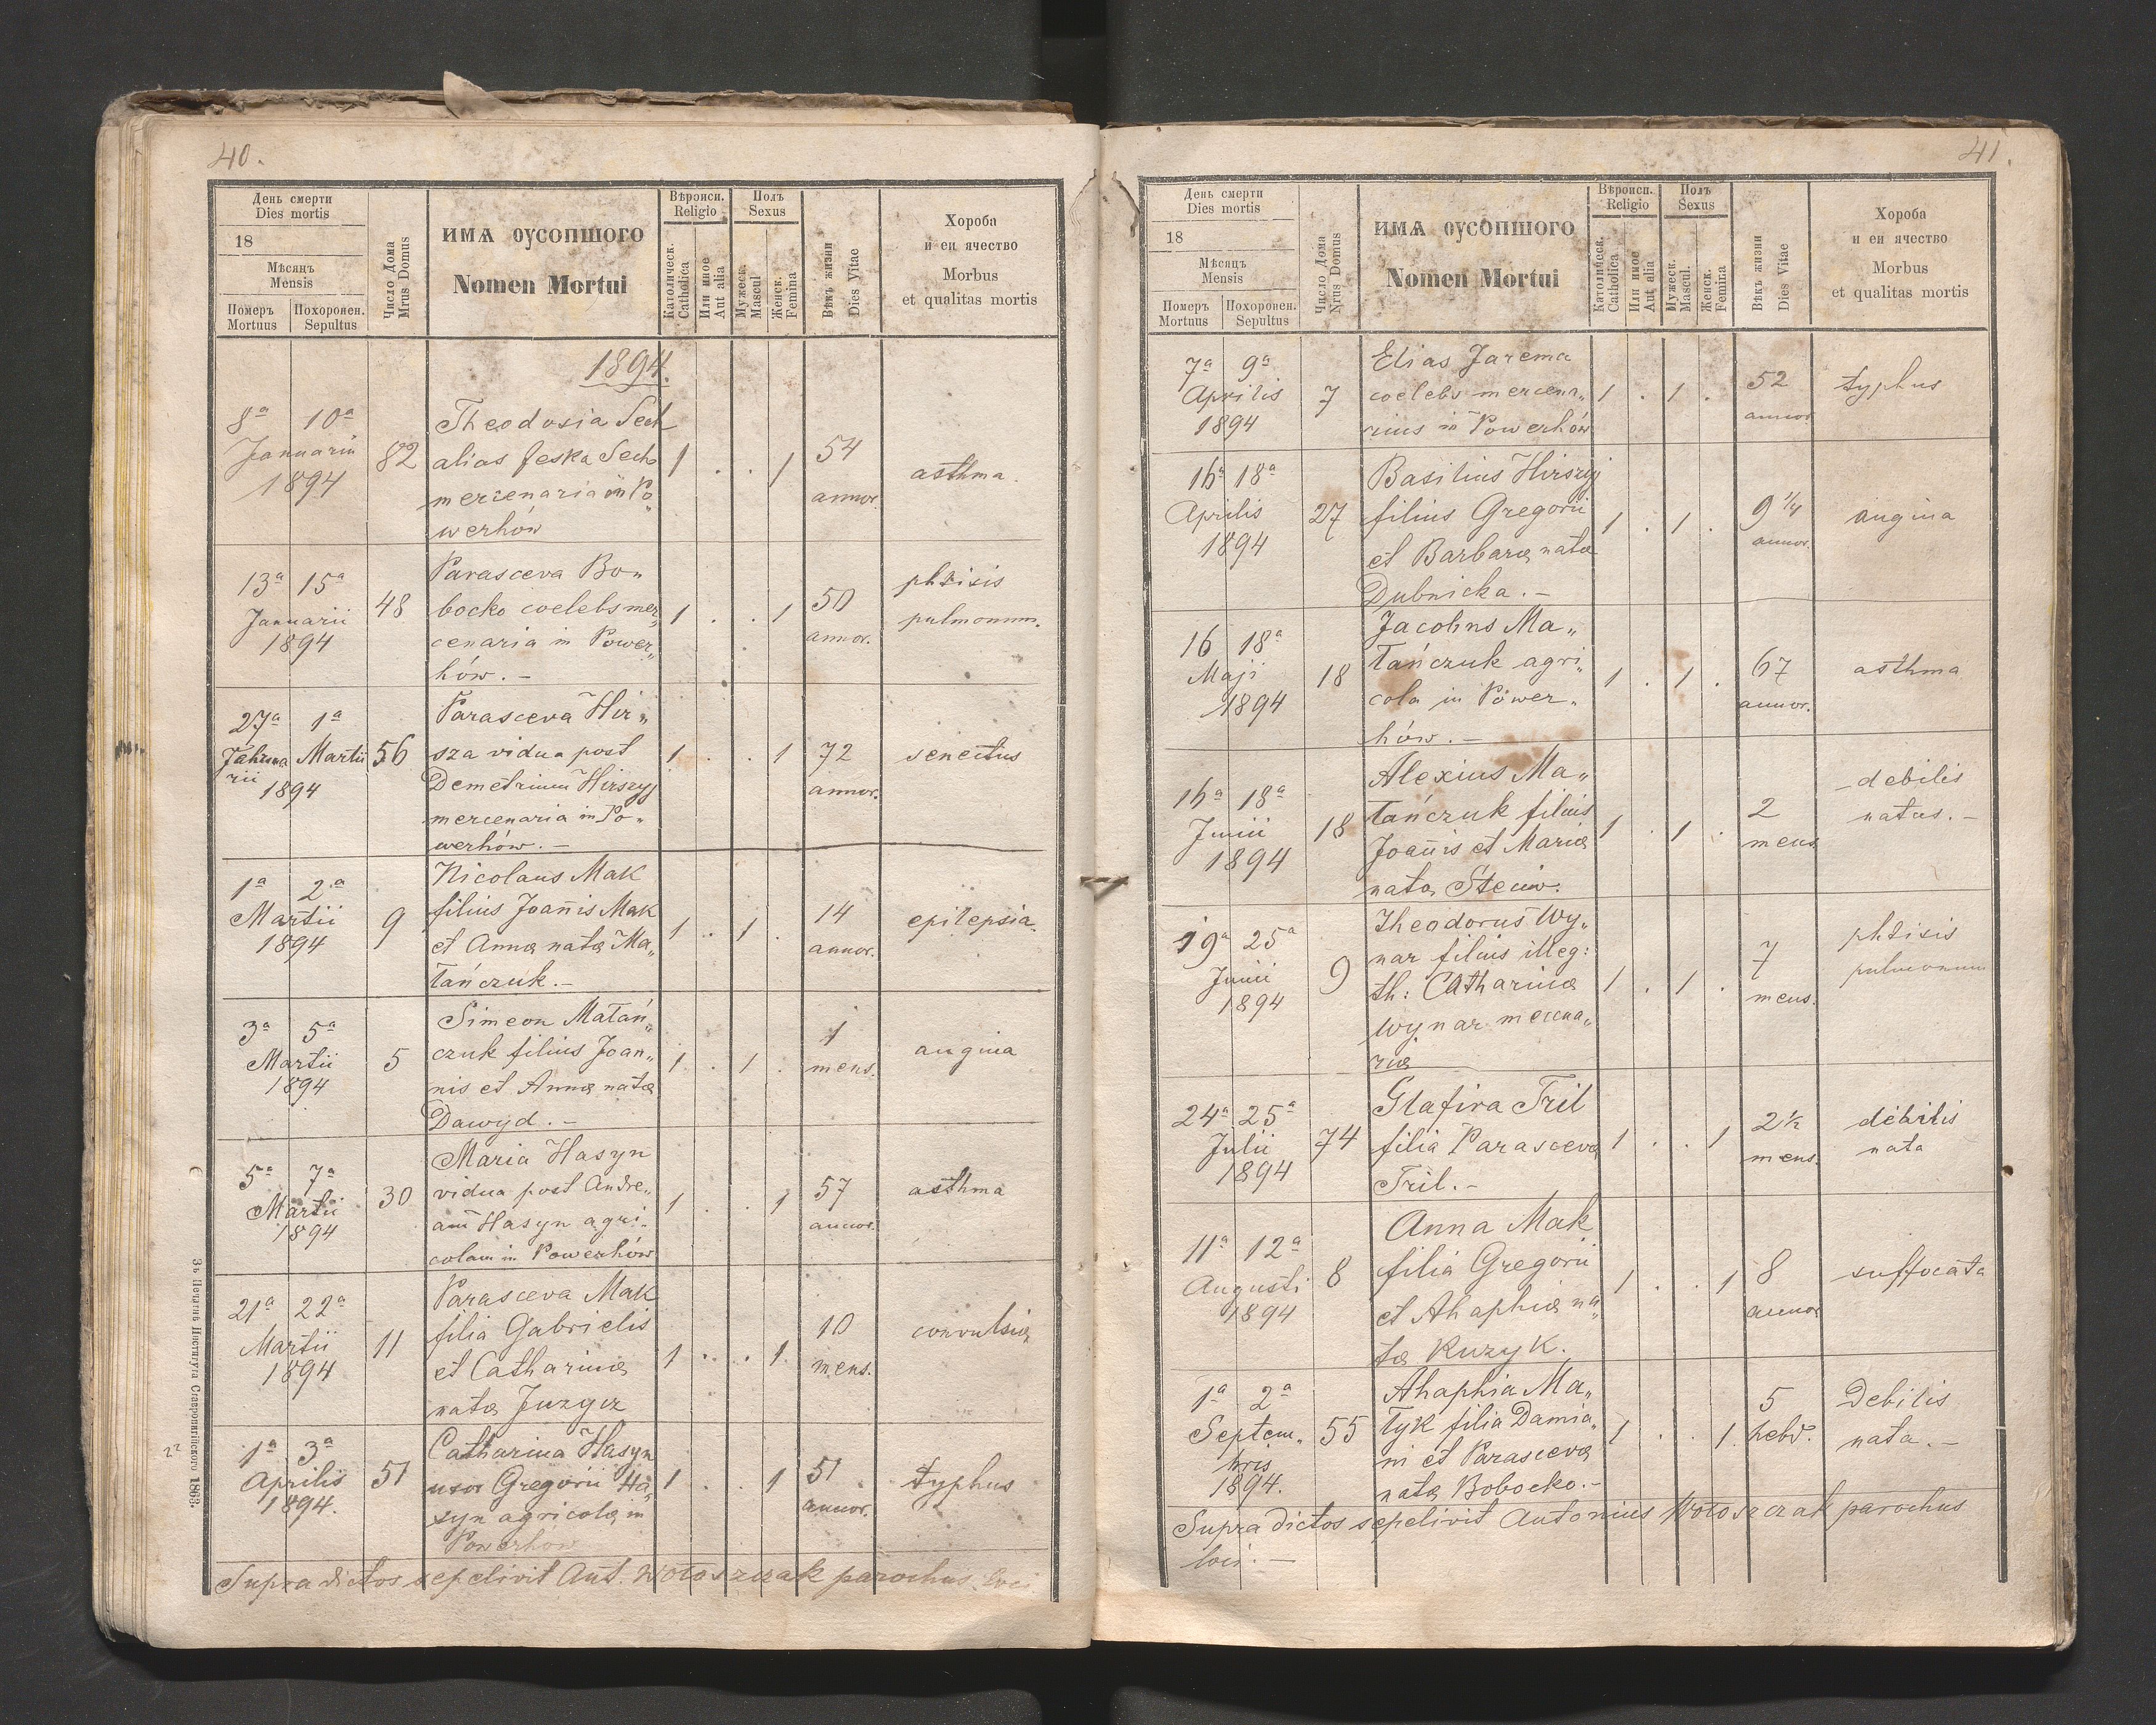 40.
День смерти
Dies mortis
18
Мѣсяць
Mensis
Померъ
Mortuus
Похоронен.
Sepultus
Число Дома
Mrus Domus
ИМѦ ОУСОПШОГО
Nomen Mortui
Вѣроиси.
Religio
Католическ.
Catholica
Или иное
Aut alia
Полъ
Sexus
Мужеск.
Mascul
Женск.
Femina
Вѣкъ жизни
Dies Vitae
Хороба
и еи ячество
Morbus
et qualitas mortis
1894.
8ª 10ª
Januarii
1894
82
Theodosia Sech
alias Feska Sech
mercenaria in Po„
werhów
1 . . 1
54
annor.
asthma.
13ª 15ª
Januarii
1894
48
Parasceva Bo„
bocko coelebs mer„
cenaria in Power„
hów. –
1 . . 1
50
annor.
phtisis
pulmonum.
27ª 1ª
Februa Martii
rii
1894
56
Parasceva Hir„
sza vidua post
Demetrium Hirszyj
mercenaria in Po„
werhów. –
1 . . 1
72
annor.
senectus
1ª 2ª
Martii
1894
9
Nicolaus Mak
filius Joañis Mak
et Annæ natæ Ma„
tańczuk. –
1 . 1 .
14
annor.
epilepsia.
3ª 5ª
Martii
1894
5
Simeon Matań„
czuk filius Joan„
nis et Annæ natæ
Dawyd. –
1 . 1 .
1
mens.
angina
5ª 7ª
Martii
1894
30
Maria Hasyn
vidua post Andre„
am Hasyn agri„
colam in Powerhów
1 . . 1
57
annor.
asthma
21ª 22ª
Martii
1894
11
Parasceva Mak
filia Gabrielis
et Catharinæ
natæ Juzgiz
1 . . 1.
10
mens.
convulsiæ
1ª 3ª
Aprilis
1894.
51
Catharina Hasyn
uxor Gregorii Ha„
syn agricolæ in
Powerhów
1 . . 1
51
annor.
typhus
Supra dictos sepelivit Ant. Wołoszczak parochus loci
Зъ Печатнѣ Института Ставропигійского 1863.
41.
День смерти
Dies mortis
18
Мѣсяць
Mensis
Померъ
Mortuus
Похоронен.
Sepultus
Число Дома
Nrus Domus
ИМѦ ОУСОПШОГО
Nomen Mortui
Вѣроиси.
Religio
Католическ.
Catholica
Или иное
Aut alia
Полъ
Sexus
Мужеск.
Mascul.
Женск.
Femina
Вѣкъ жизни
Dies Vitae
Хороба
и еи ячество
Morbus
et qualitas mortis
7ª 9ª
Aprilis
1894
7
Elias Jarema
coelebs mercena„
rius in Powerhów
1 . 1 .
52
annor
typhus
16ª 18ª
Aprilis
1894
27
Basilius Hirszyj
filius Gregorii
et Barbaræ natæ
Dubnicka. –
1 . 1 .
9 1/4
annor.
angina
16 18ª
Maji
1894
18
Jacobus Ma„
tańczuk agri„
cola in Power„
hów. –
1 . 1 .
67
annor.
asthma
16ª 18ª
Junii
1894
18
Alexius Ma„
tańczuk filius
Joañis et Mariæ
natæ Steciw.
1 . 1 .
2
mens
debilis
natus. –
19ª 25ª
Junii
1894
9
Theodorus Wy„
nar filius illeg:
th: Catharinæ
Wynar mercena„
riæ
1 . 1 .
7
mens.
phtisis
pulmonum
24ª 25ª
Julii
1894
74
Glafira Tril
filia Parascevæ
Tril. –
1 . . 1
2 1/2
mens.
debilis
nata
11ª 12ª
Augusti
1894
8
Anna Mak
filia Gregorii
et Ahaphiæ na„
tæ Kuzyk.
1 . . 1
8
annor
suffocata
1ª 2ª
Septem„
bris
1894.
55
Ahaphia Ma„
tyk filia Damia„
ni et Parascevæ
natæ Bobocko. –
1 . . 1.
5
hebd.
Debilis
nata. –
Supra dictos sepelivit Antonius Wołoszczak parochus
loci. –